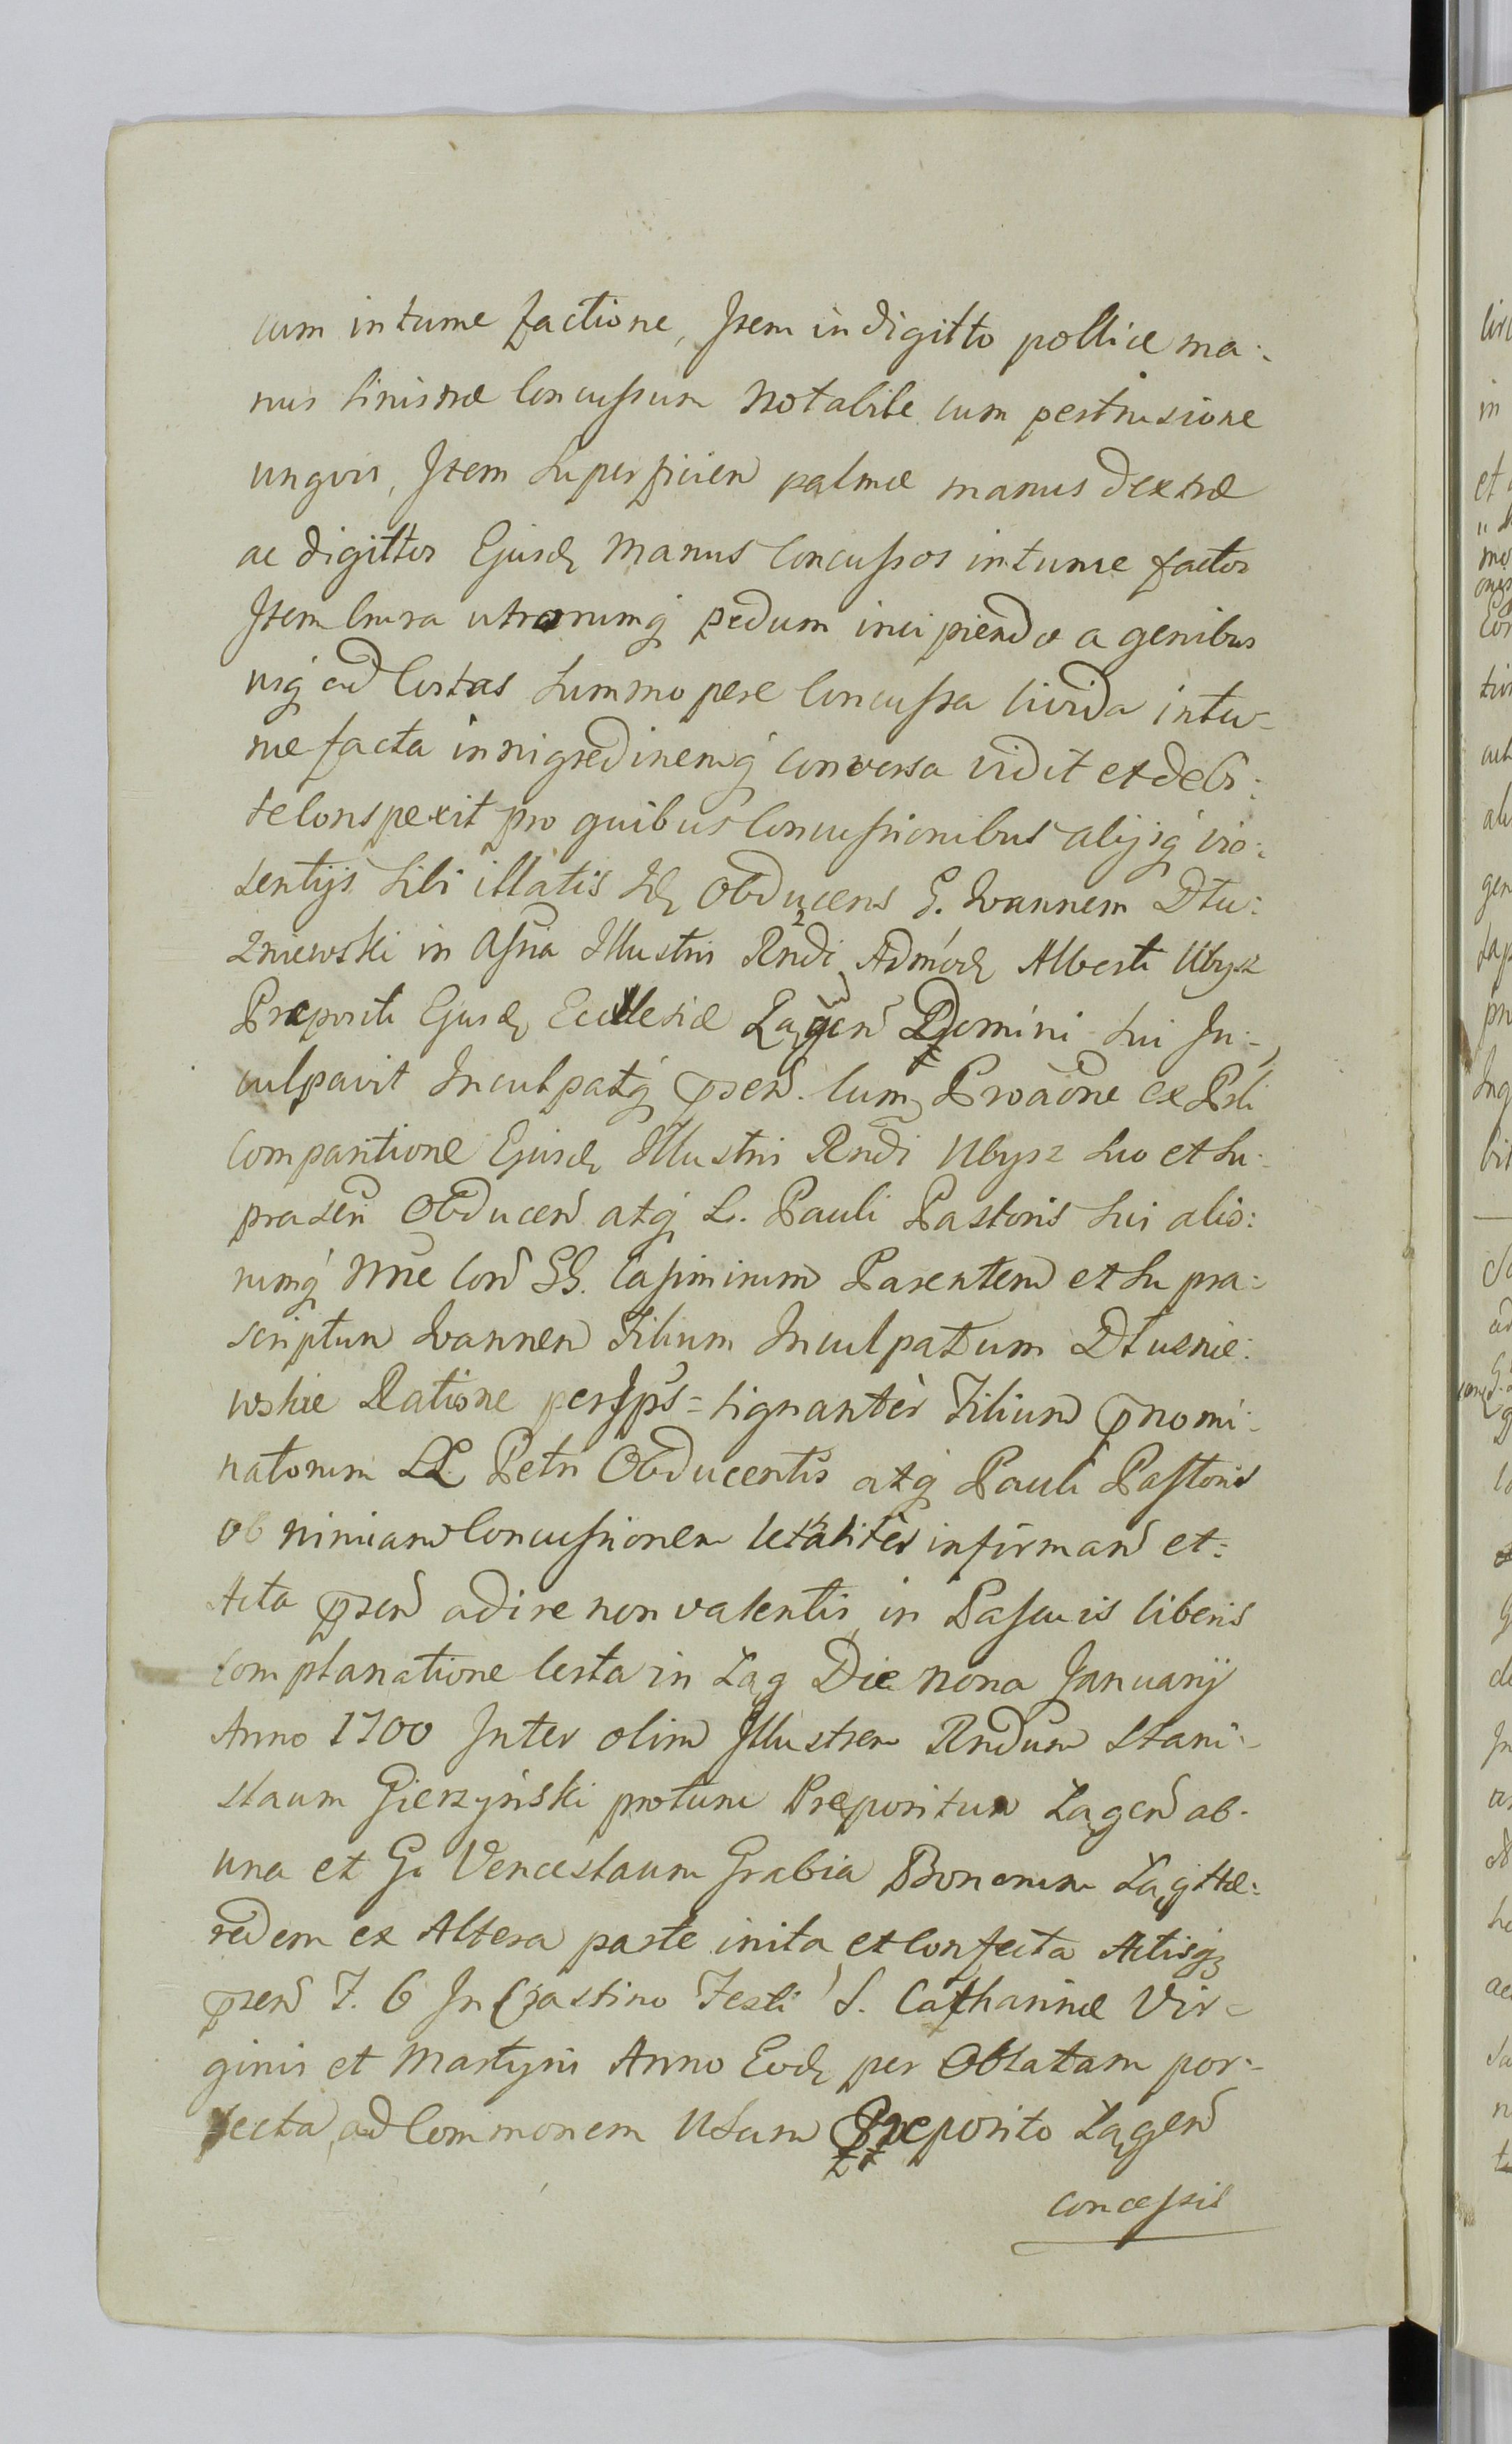 cum intume factione, Item in digitto pollice ma:
nus sinistræ Concussum Notabile cum pertrusione
ungvis, Item Superficien palmæ manus dextræ
ac digittos Ejusd manus Concussos intume factos
Item Crura utrorumq pedum incipiendo a genibus
usq ad Costas Summo pere Concussa livida intu-
me facta in nigredinemq conversa vidit et debi:
te Conspexit pro quibus Concussionibus alijsq vio:
lentijs Sibi illatis Id Obducens G. Joannem Dłu:
zniewski in Assña Illustris Rndi Admód Alberti Ubysz
Præpositi Ejusd Ecclesiæ Łągen Domini Sui In:
culpavit Inculpatq præn. Cum Prvãone ex Psli
Comparitione Ejusd Illustris Rndi Ubysz Suo et Su:
prascri Obducen atq L. Pauli Pastoris Sui alio:
rumq Nne Con GG. Casimirum Parentem et Supra:
scriptum Joannem Filium Inculpatum Dłuznie:
wskie Ratione per Ips= signantèr Filium pnomi:
natorum LL Petri Obducentis atq Pauli Pastoris
ob nimiam Concussionem letalitèr infirman et:
Acta præn adire non valentis in Pascuis liberis
Complanatione Certa in Łąg Die nona Januarij
Anno 1700 Inter olim Illustrem Rndum Stani:
slaum Gierzyński protunc Præpositum Łągen ab
una et G. Venceslaum Grabia Bonorum Łąg Hæ:
redem ex Altera parte inita et Confecta Actisq
præn F. 6 In Crastino Festi S. Catharinæ Vir-
ginis et Martyris Anno Eod per Oblatam por:
recta, ad Commonem Usum Præposito Łągen
concessis